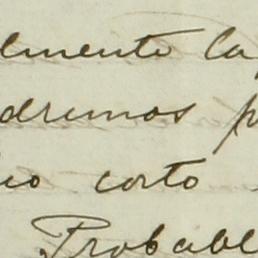 lmente la
dremos p
io corto
Probabl